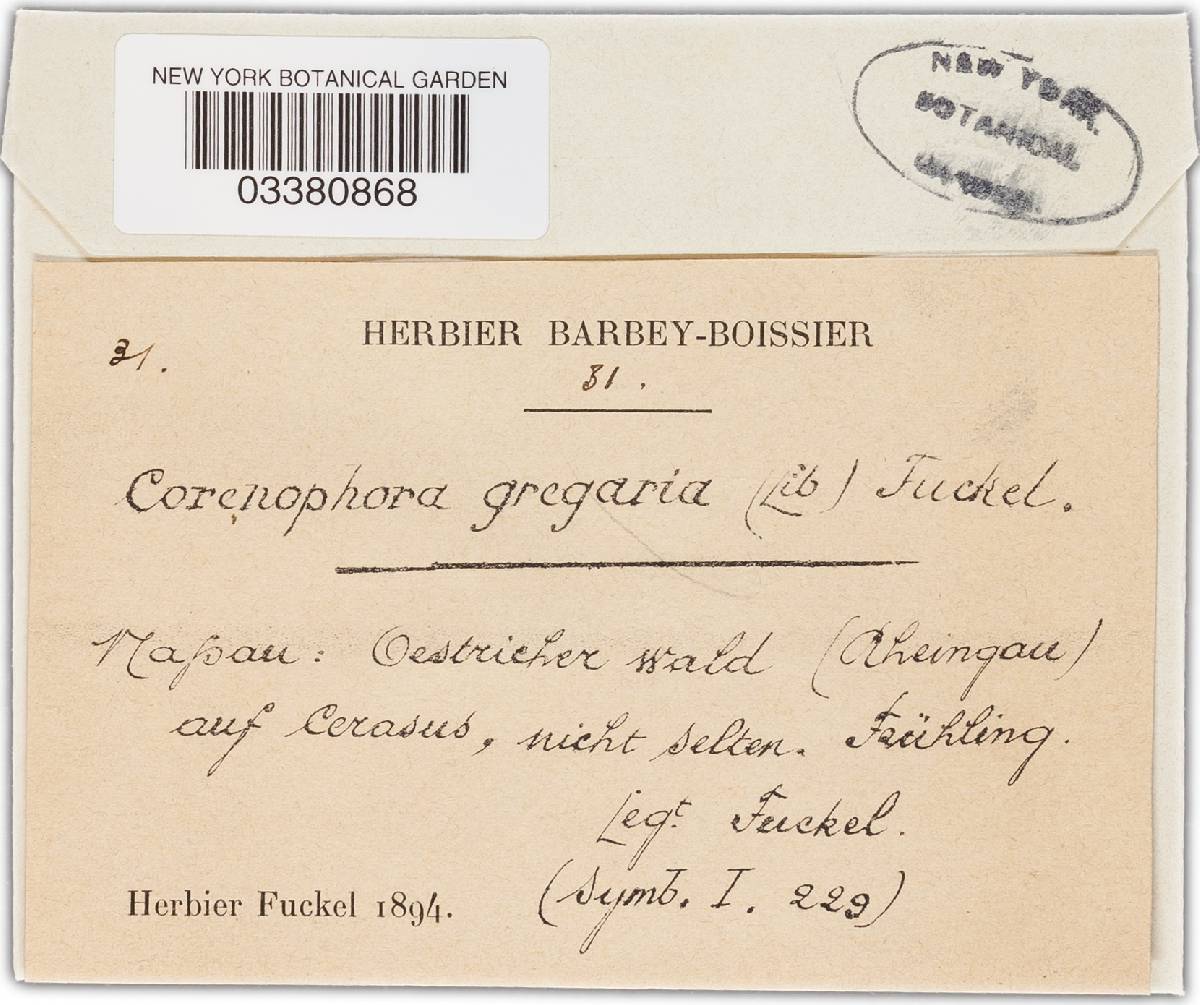 NEW YORK BOTANICAL GARDEN
03380868
NEW YORK
BOTANICAL
GARDEN.
HERBIER BARBEY-BOISSIER
31.
31.
Corenophora gregaria (Lib) Fuckel.
Naßau: Oestricher wald (Rheingau)
auf Cerasus, nicht selten. Frühling.
Legt. Fuckel.
(Symb. I. 229)
Herbier Fuckel 1894.